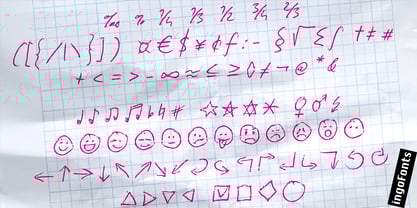 ‱ % ¼ ⅓ ½ ¾ ⅔
([{/|\}])
¤ € $ ¥ ¢ ƒ : -
§ √ Σ ∫ † ‡ #
+ < = > - ∞ ≈ ≤ ≥ ◊ ≠ ¬ @ * &
♩ ♪ ♫ ♬ ♭ ♮ #
♀ ♂
ingoFonts